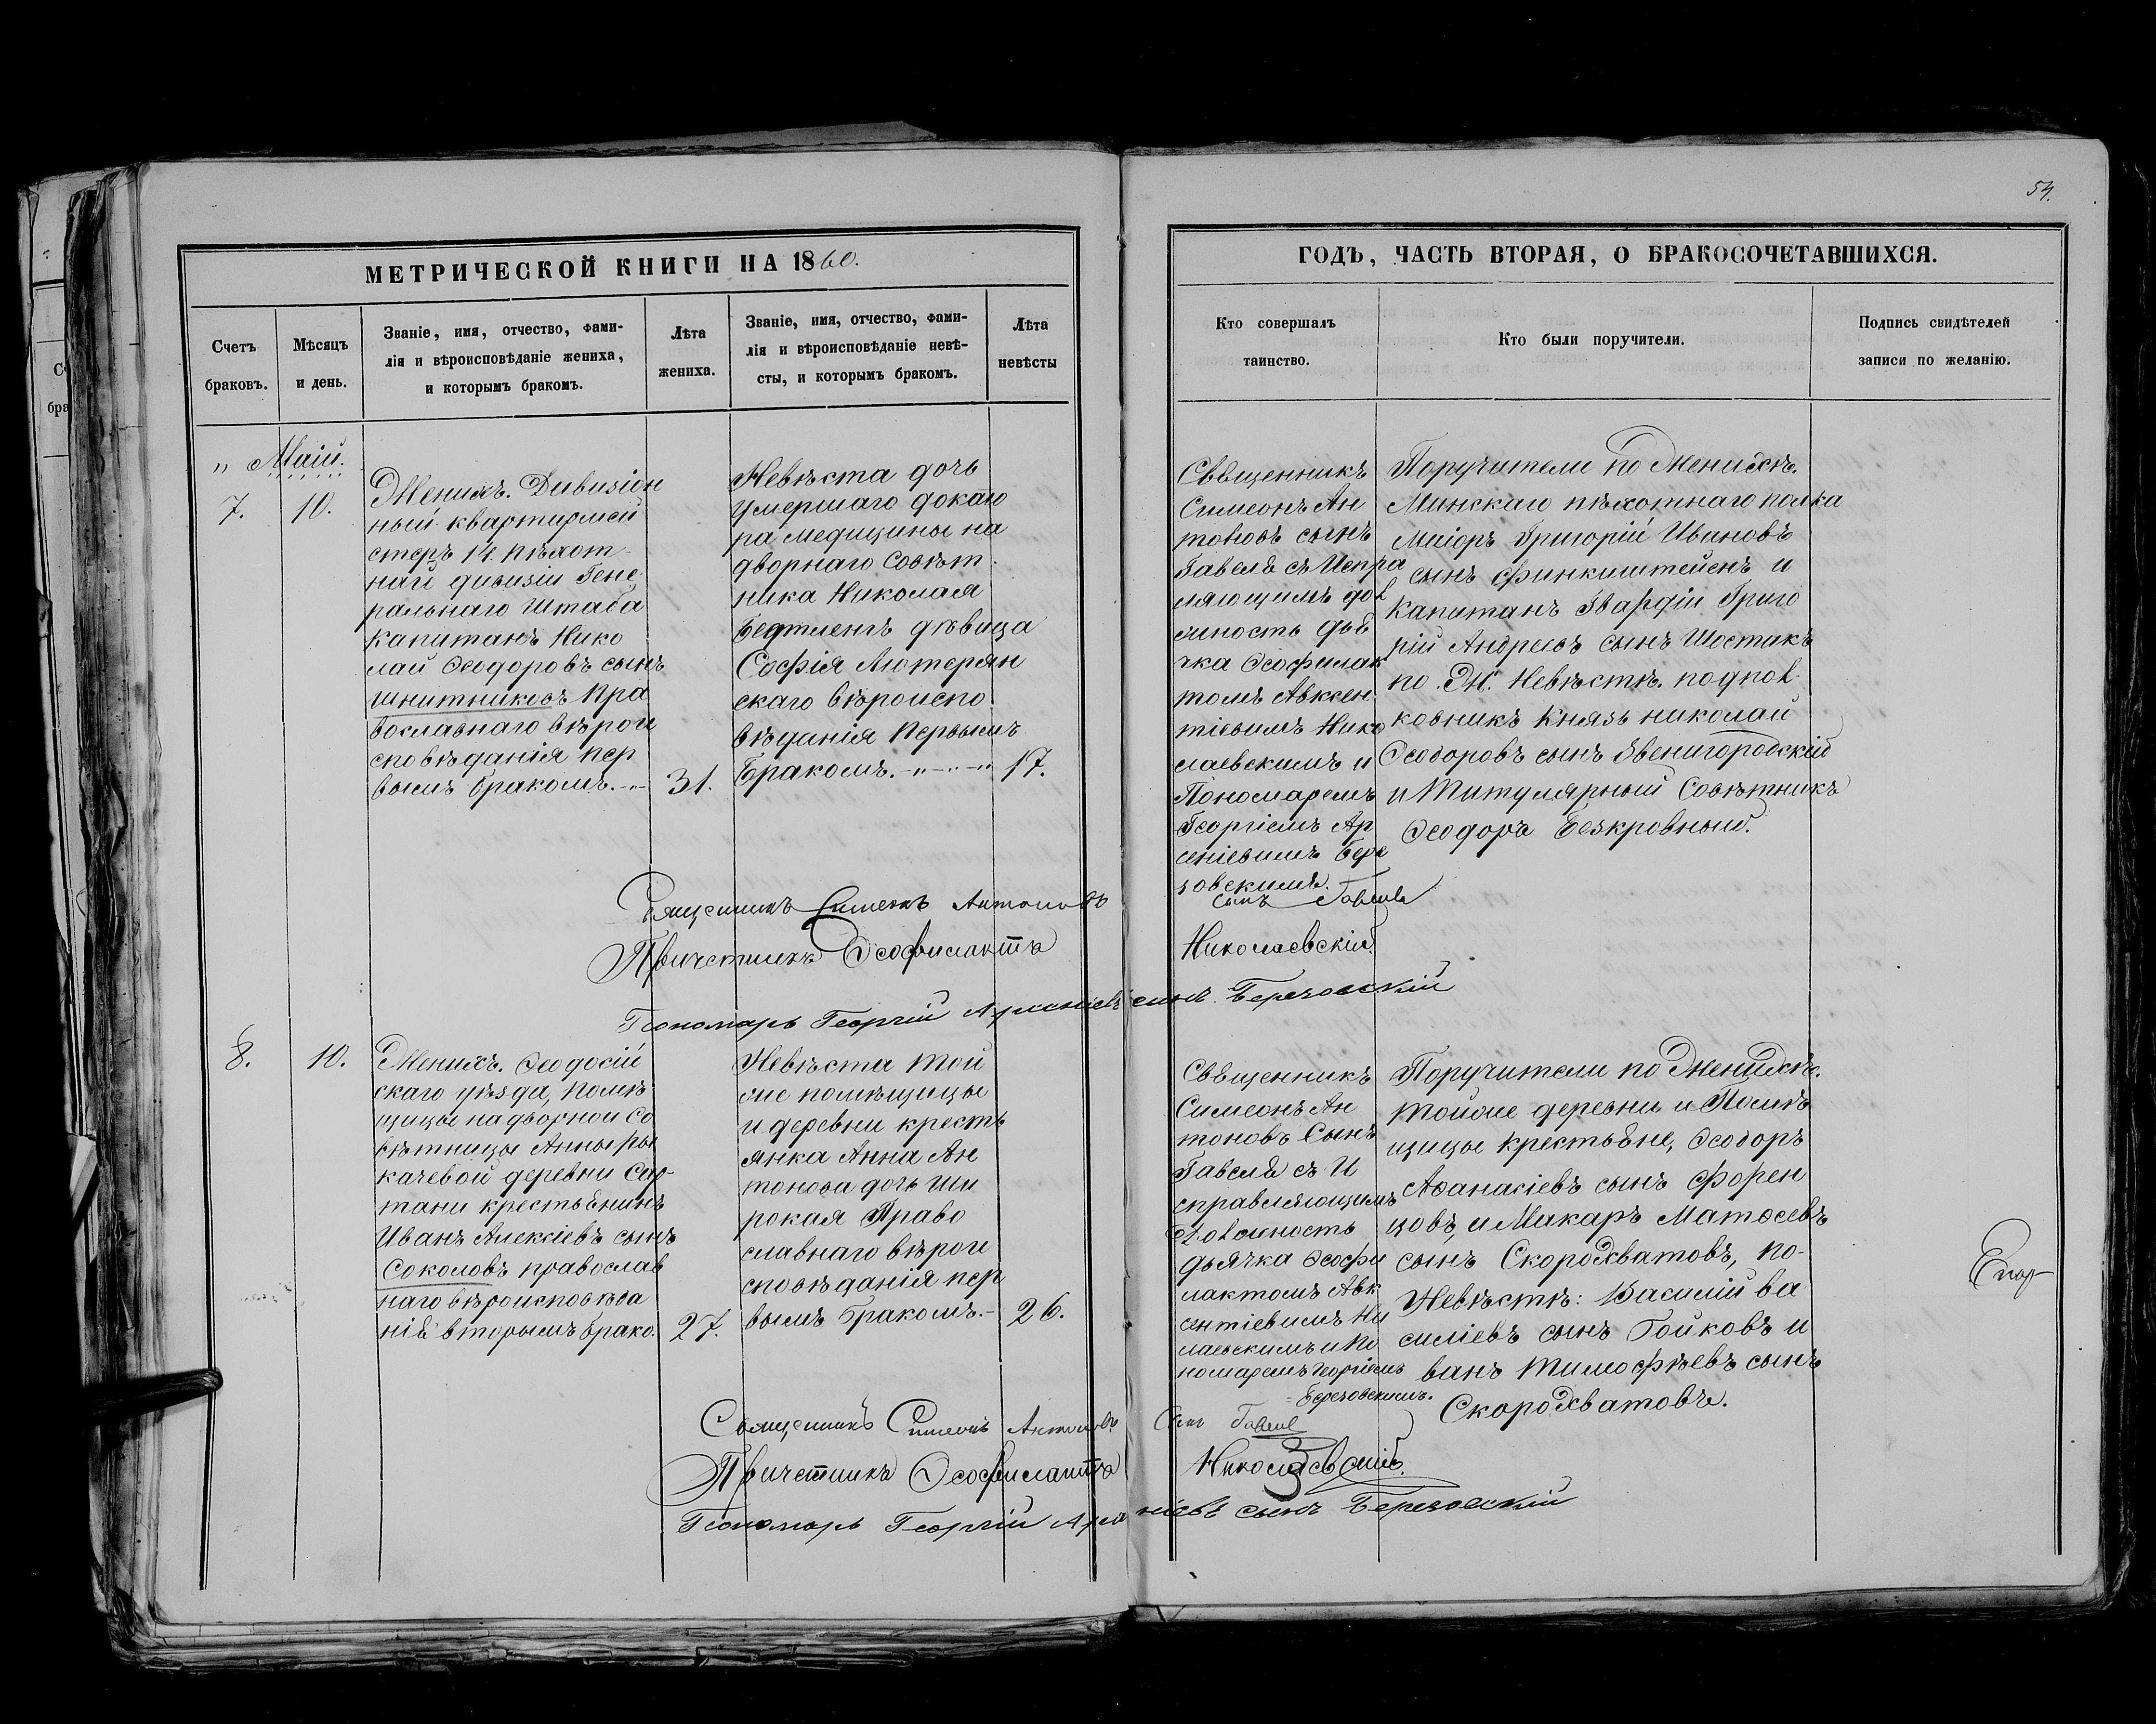 54.
МЕТРИЧЕСКОЙ КНИГИ НА 1860.
Счетъ браковъ.
Мѣсяцъ и день.
Званіе, имя, отчество, фами-
лія и вѣроисповѣданіе жениха,
и которымъ бракомъ.
Лѣта жениха.
Званіе, имя, отчество, фами-
лія и вѣроисповѣданіе невѣ-
сты, и которымъ бракомъ.
Лѣта невѣсты
ГОДЪ, ЧАСТЬ ВТОРАЯ, О БРАКОСОЧЕТАВШИХСЯ.
Кто совершалъ
таинство.
Кто были поручители.
Подпись свидѣтелей
записи по желанію.
„ Маій.
7.
10.
Женихъ. Дивизіон
ный квартирмей
стеръ 14 пѣхот-
наго дивизіи Гене
ральнаго Штаба
Капитанъ Нико
лай Ѳеодоровъ сынъ
Шнитниковъ пра
вославнаго вѣрои
сповѣданія пер
вымъ бракомъ.
31.
Невѣста дочь
умершаго докто
ра медицины на
дворнаго Совѣт
ника Николая
дѣвица
Софія Лютеран
скаго вѣроиспо
вѣданія Первымъ
Бракомъ.
17.
Свещенникъ
Симеонъ Ан
тоновъ сынъ
Гавеля съ Испра
ляющимъ дол
жность дья
чка Ѳеофилак
томъ Авксен
тіевымъ Нико
лаевскимъ и
Пономаремъ
Георгіемъ Ар
сеніевымъ Бере
зовскимъ.
Поручители по Женихѣ.
Минскаго пѣхотнаго полка
Маіоръ Григорій Ивановъ
сынъ Финкиштейенъ и
Капитанъ Гвардіи Григо
рій Андреевъ сынъ Шостакъ
по. Эн. Невѣстѣ. подпол
ковникъ Князь Николай
Ѳеодоровъ сынъ Звенигородскій
и Титулярный Совѣтникъ
Ѳеодоръ Безкровный.
Священникъ Симеонъ Антоновъ сынъ Гавель
Причетникъ Ѳеофилактъ Николаевскій
Пономарь Георгій Арсеніевъ сынъ Березовскій
8.
10.
Женихъ. Ѳеодосій
скаго уѣзда, помѣ
щицы надворной Со
вѣтницы Анны Ры
качевой деревни Сар
таны крестьянинъ
Иванъ Алексіевъ сынъ
Соколовъ православ
наго вѣроисповѣда
нія вторымъ брако.
27.
Невѣста той
же помѣщицы
и деревни кресть
янка Анна Ан
тонова дочь Ши
рокая Право
славнаго вѣрои
сповѣданія пер
вымъ бракомъ.-
26.
Свещенникъ
Симеонъ Ан
тоновъ Сынъ
Гавеля съ И
справляющимъ
Должность
дьячка Ѳеофи
лактомъ Авк
сентіевымъ Ни
лаевскимъ и По
номаремъ Георгіемъ
Березовскимъ.
Поручители по Женихѣ.
тойже деревни и Помѣ
щицы крестьяне, Ѳеодоръ
Аѳанасіевъ сынъ Форен
цовъ, и Макаръ Матѳеевъ
сынъ Скородхватовъ, по-
Невѣстѣ: Василій Ва
силіевъ сынъ Бойковъ и
ванъ Тимофѣевъ сынъ
Скородхватовъ.
Священникъ Симеонъ Антоновъ Сынъ Гавель
Причетникъ Ѳеофилактъ Николаевскій
Пономарь Георгій Арсеніевъ сынъ Березовскій